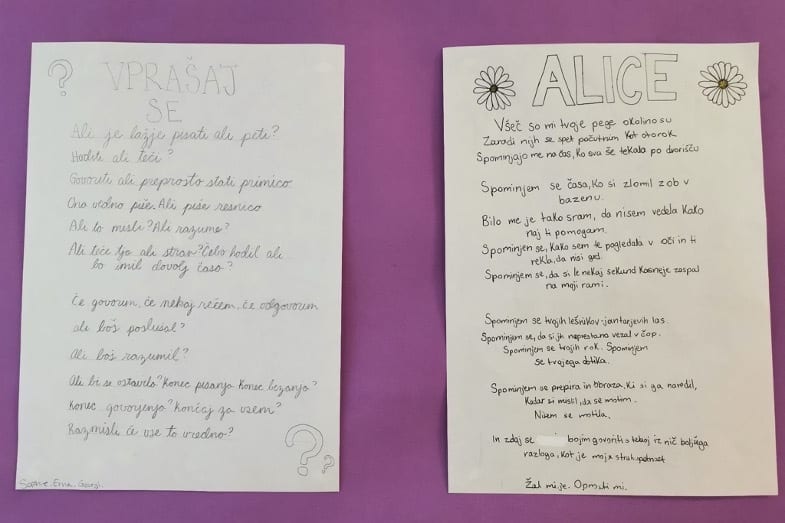 VPRAŠAJ
SE
Ali je lažje pisati ali peti?
Hoditi ali teči?
Govoriti ali preprosto stati primico
Ona vedno piše. Ali piše resnico
Ali to misli? Ali razume?
Ali teče tja ali stran? Če bo hodil ali
bo imil dovolj časa?
Če govorim, če nekaj rečem, če odgovorim
ali boš poslušal?
Ali boš razumil?
Ali bi se ostavilo? Konec pisanja Konec bezanja?
Konec govorjenja? Končaj za vsem?
Razmisli če vse to vredno?
Sophie. Ema.
ALICE
Všeč so mi tvoje pege okoli nosu
Zaradi njih se spet počutim kot otorok
Spominjajo me na čas, ko sva še tekala po dvorišču
Spominjem se časa, ko si zlomil zob v
bazenu.
Bilo me je tako sram, da nisem vedela kako
naj ti pomogam.
Spominjem se, kako sem te pogledala v oči in ti
rekla, da nisi grd.
Spominjem se, da si le nekaj sekund kasneje zaspal
na moji rami.
Spominjem se tvojih lešnikov-jantarjevih las.
Spominjem se, da si jih neprestano vezal v čop.
Spominjem se tvojih rok. Spominjem
se tvojega dotika.
Spominjem se prepira in obraza, ki si ga naredil,
kadar si mislil, da se motim.
Nisem se motila.
In zdaj se bojim govoriti s teboj iz nič boljšega
razloga, kot je moja strahopetnost
Žal mi je. Oprosti mi.